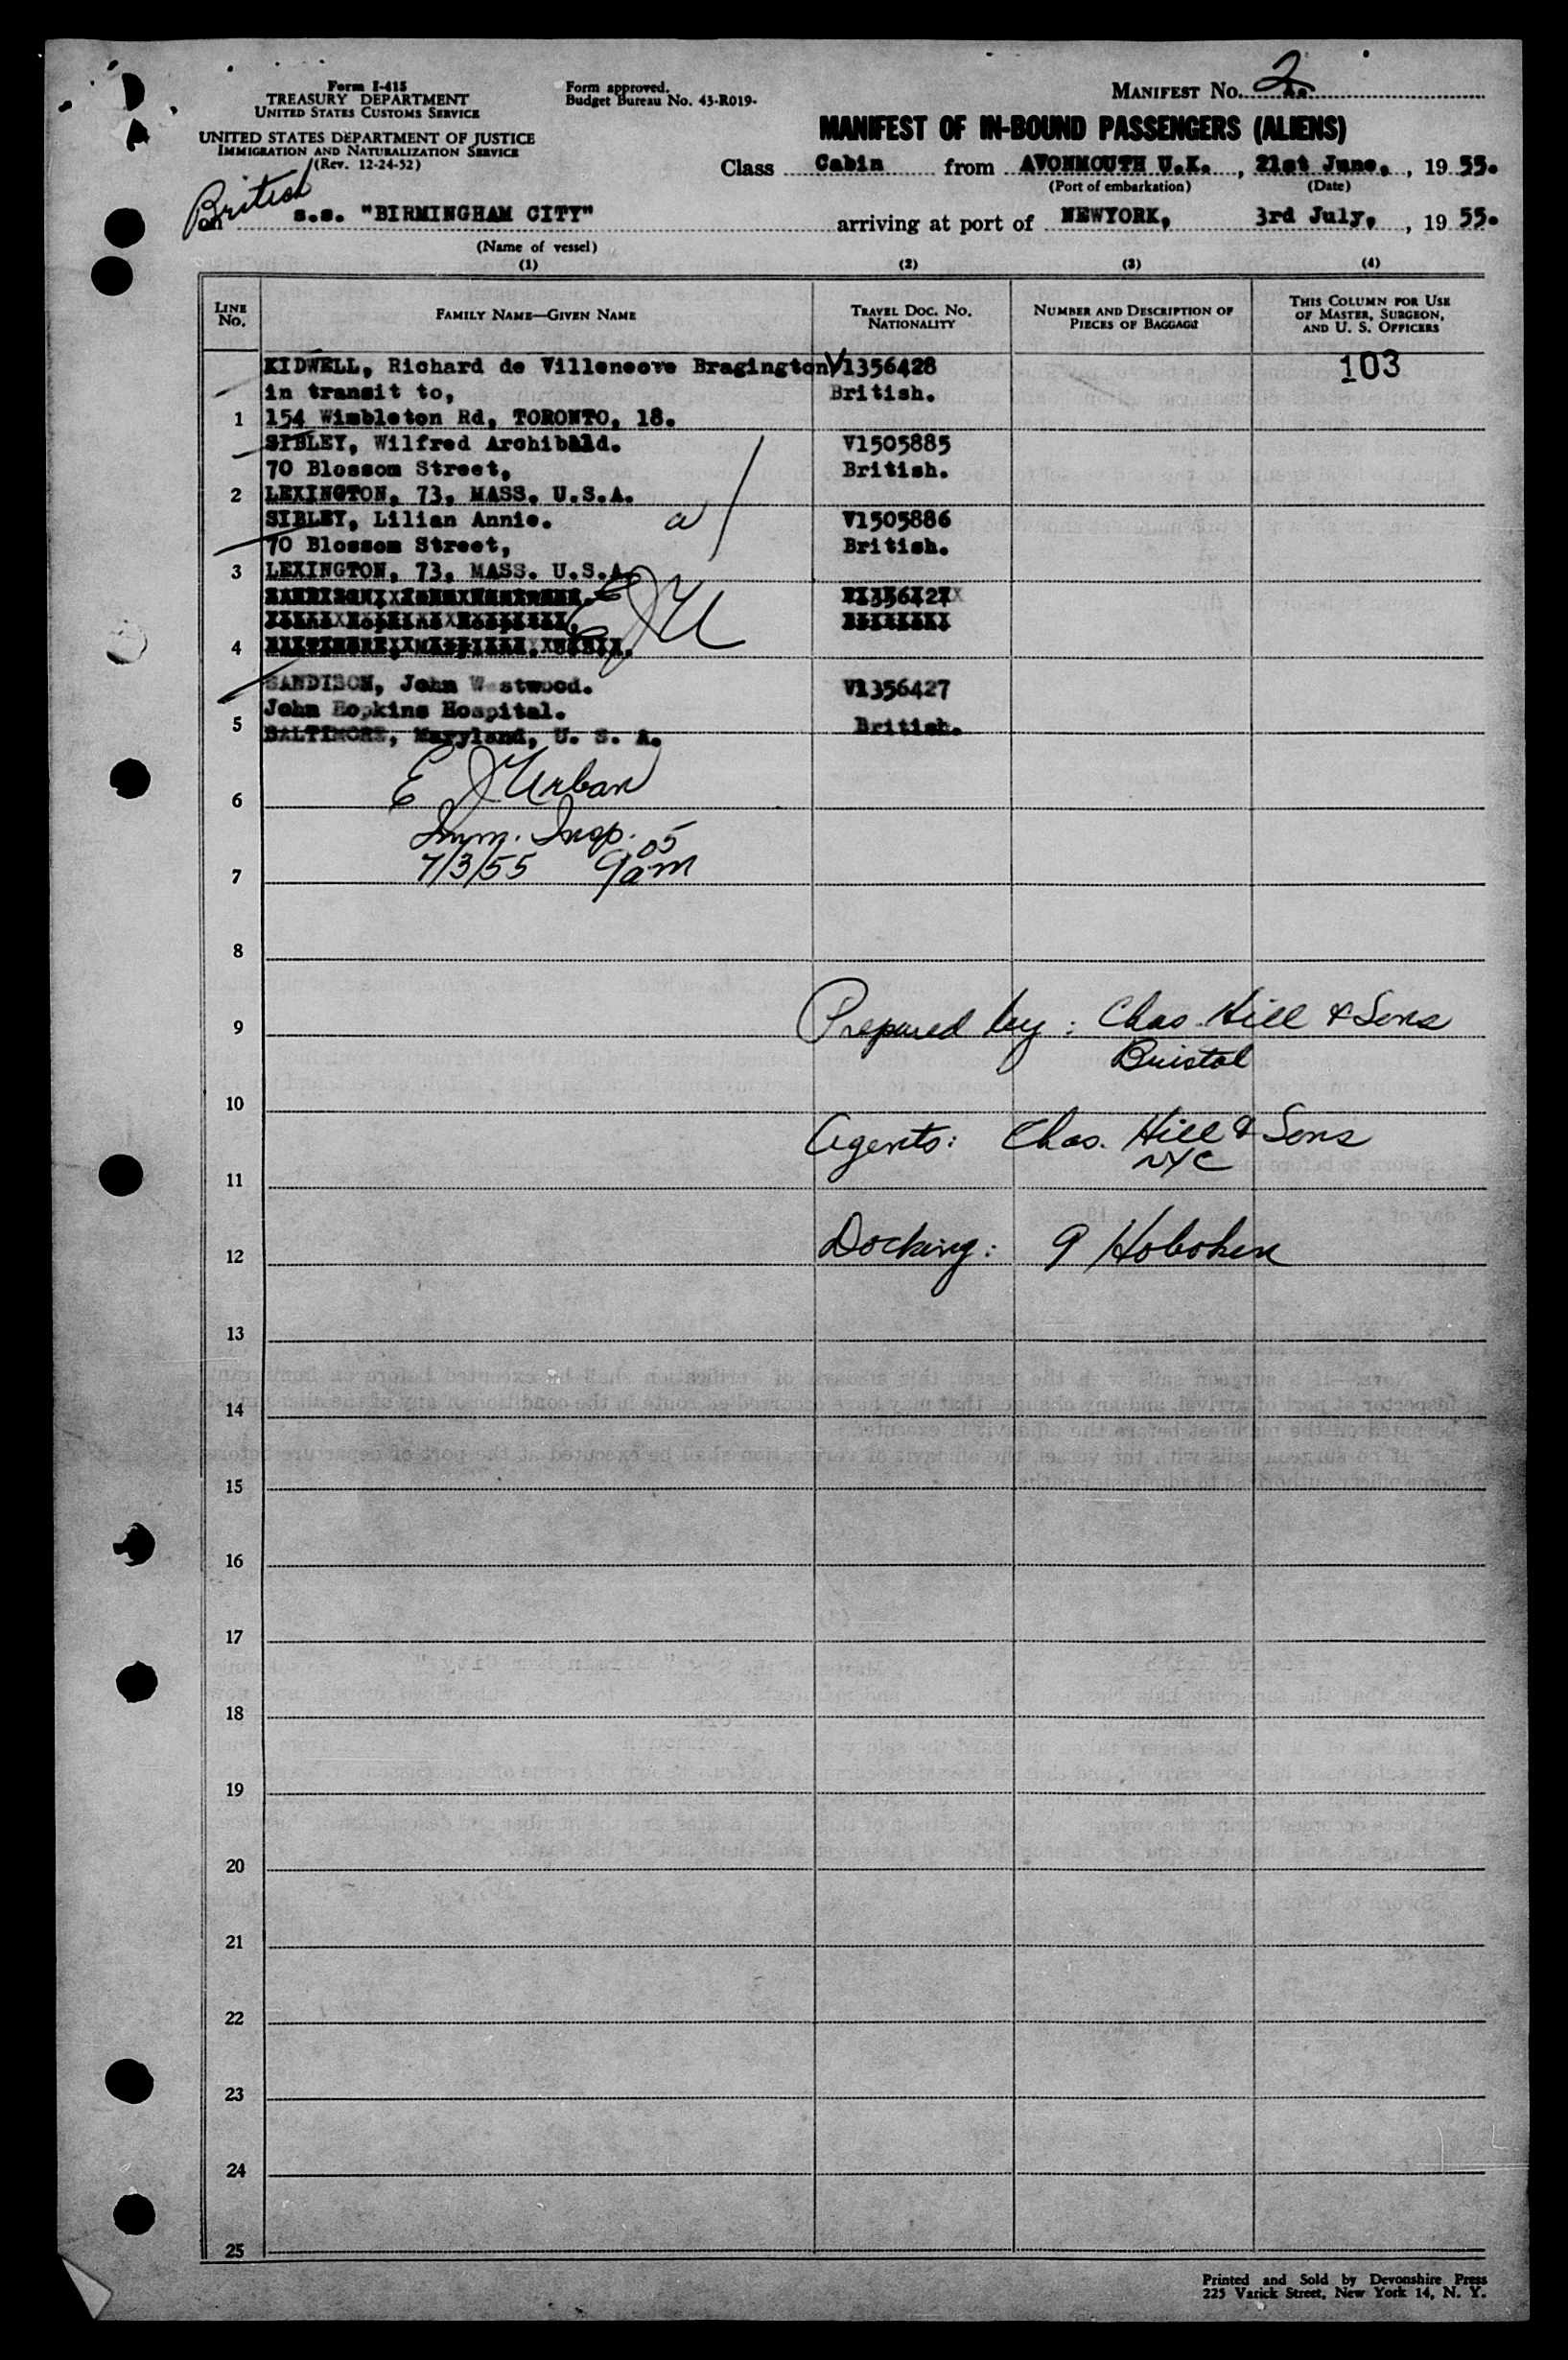 Form I-415
TREASURY DEPARTMENT
UNITED STATES CUSTOMS SERVICE
UNITED STATES DEPARTMENT OF JUSTICE
IMMIGRATION AND NATURALIZATION SERVICE
(Rev. 12-24-52)
Form approved.
Budget Bureau No. 43-R019-
MANIFEST No. 2
MANIFEST OF IN-BOUND PASSENGERS (ALIENS)
Class Cabin from AVONMOUTH U.K. , 21st June, , 19 55.
(Port of embarkation) (Date)
British
on s.s. "BIRMINGHAM CITY" arriving at port of NEWYORK, 3rd July, , 19 55.
(Name of vessel)
(1) (2) (3) (4)
LINE No. FAMILY NAME—GIVEN NAME TRAVEL DOC. NO. NATIONALITY NUMBER AND DESCRIPTION OF PIECES OF BAGGAGE THIS COLUMN FOR USE OF MASTER, SURGEON, AND U. S. OFFICERS
KIDWELL, Richard de Villeneove Bragington V1356428 103
in transit to, British.
1 154 Wimbleton Rd, TORONTO, 18.
SIBLEY, Wilfred Archibald. V1505885
70 Blossom Street, British.
2 LEXINGTON, 73, MASS. U.S.A.
SIBLEY, Lilian Annie. a/ V1505886
70 Blossom Street, British.
3 LEXINGTON, 73, MASS. U.S.A.
EJU
4
SANDISON, John Westwood. V1356427
John Hopkins Hospital. British.
5 BALTIMORE, Maryland, U. S. A.
E J Urban
6
Imm. Insp.
7/3/55 9.05 am
7
8
Prepared by : Chas. Hill & Sons
9
Bristol
10
Agents: Chas. Hill & Sons
NYC
11
Docking: 9 Hoboken
12
13
14
15
16
17
18
19
20
21
22
23
24
25
Printed and Sold by Devonshire Press
225 Varick Street, New York 14, N. Y.